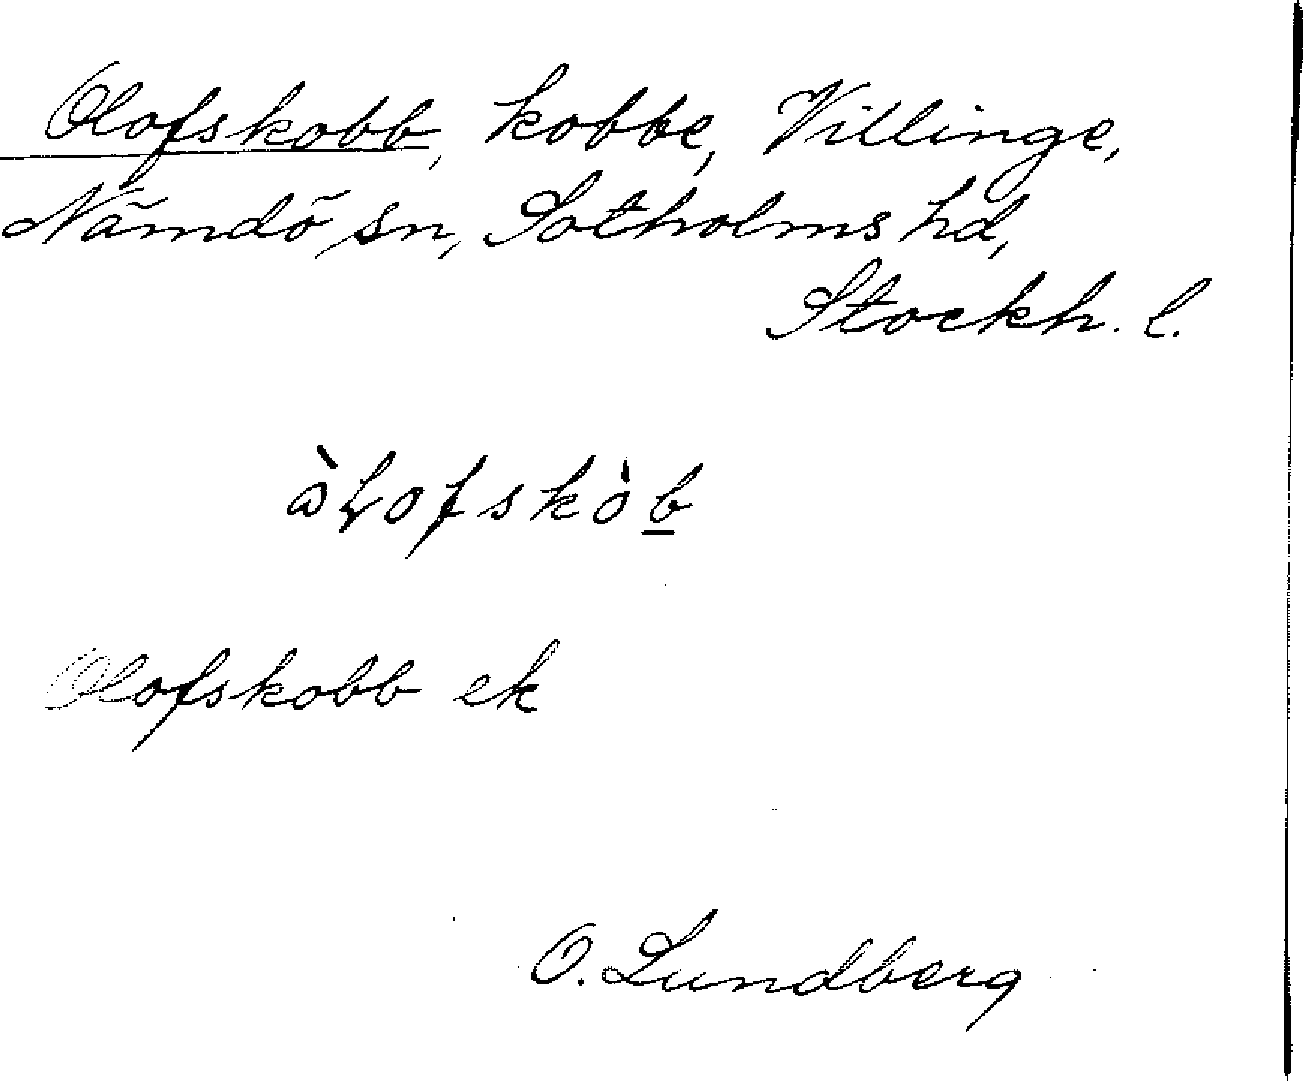 Olofskobb, kobbe, Villinge,
Nämdö sn, Sotholms hd,
Stockh. l.
òłofskòb
Olofskobb ek
O. Lundberg